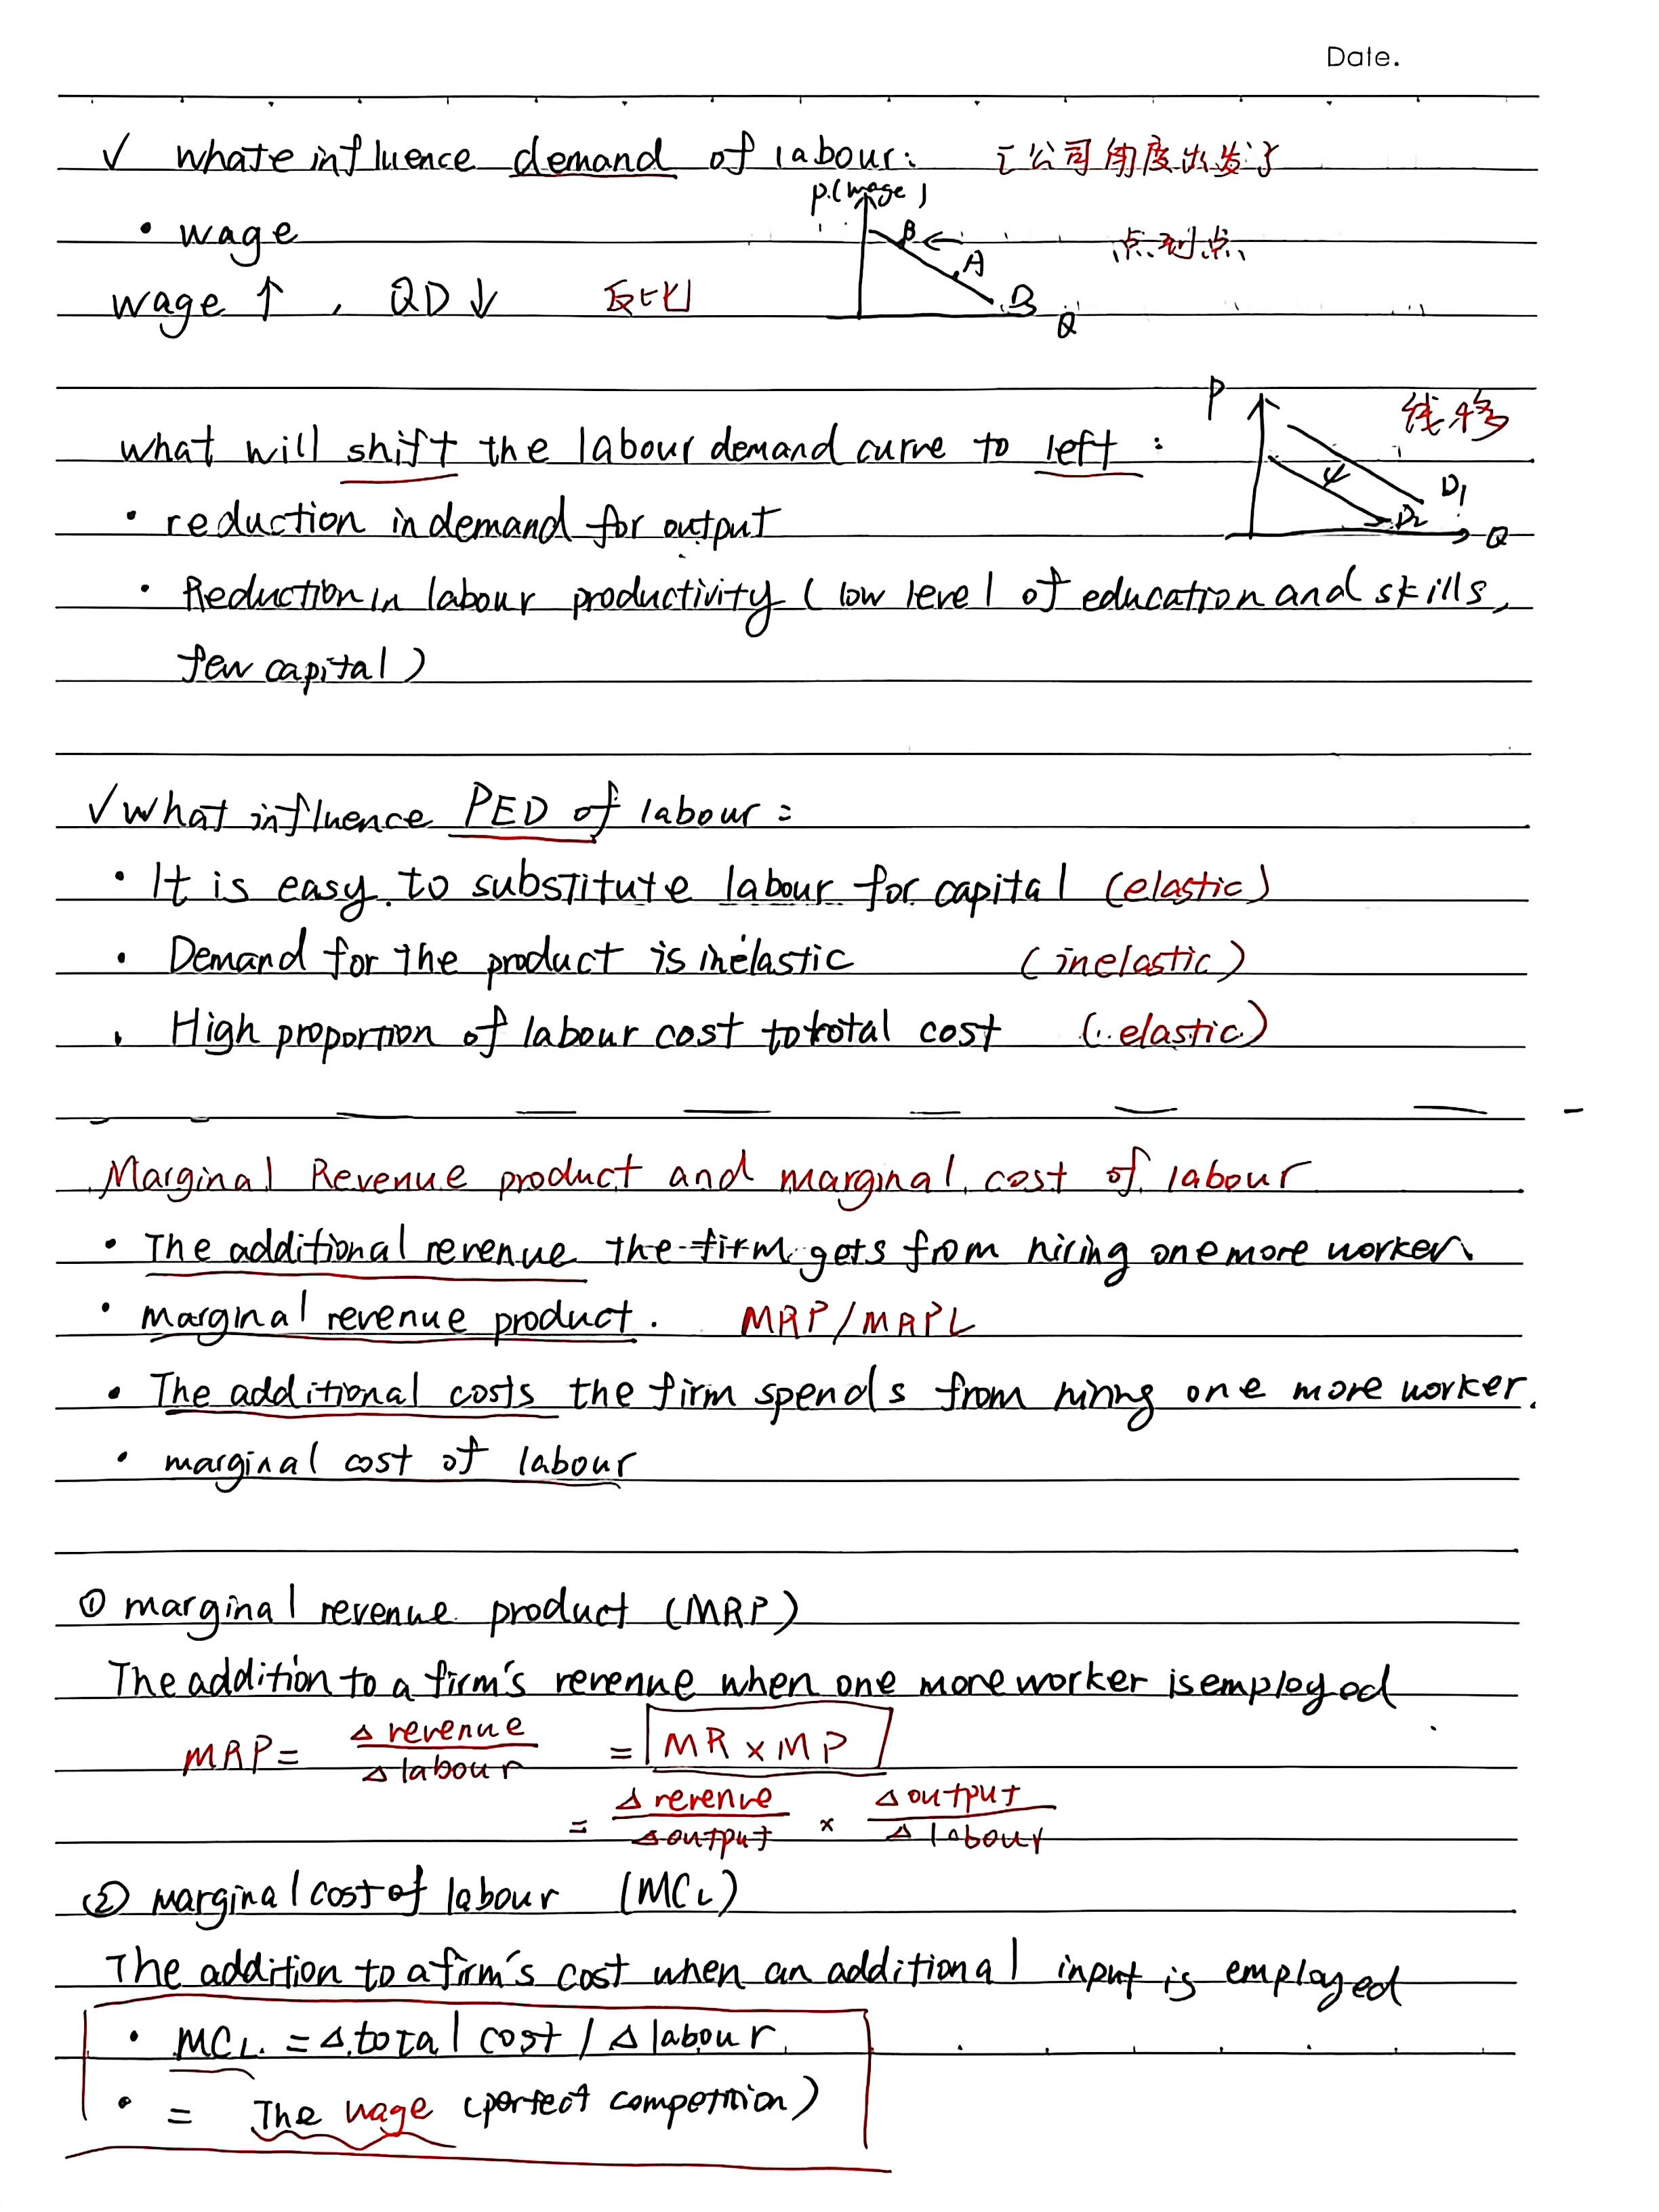 Date.
✓ whate influence demand of labour: [公司角度出发]
P.(wage)
• wage
B ← A 点到点
wage ↑ , QD ↓ 反比
D
Q
P
线移
what will shift the labour demand curve to left :
D1
• reduction in demand for output
D2
Q
• Reduction in labour productivity ( low level of education and skills,
few capital )
✓ What influence PED of labour:
• It is easy to substitute labour for capital (elastic)
• Demand for the product is inelastic (inelastic)
• High proportion of labour cost to total cost (elastic)
Marginal Revenue product and marginal cost of labour
• The additional revenue the firm gets from hiring one more worker.
• marginal revenue product. MRP/MRPL
• The additional costs the firm spends from hiring one more worker.
• marginal cost of labour
① marginal revenue product (MRP)
The addition to a firm's revenue when one more worker is employed
MRP = Δ revenue / Δ labour = MR × MP
= Δ revenue / Δ output × Δ output / Δ labour
② marginal cost of labour (MCL)
The addition to a firm's cost when an additional input is employed
• MCL = Δ total cost / Δ labour
• = The wage (perfect competition)